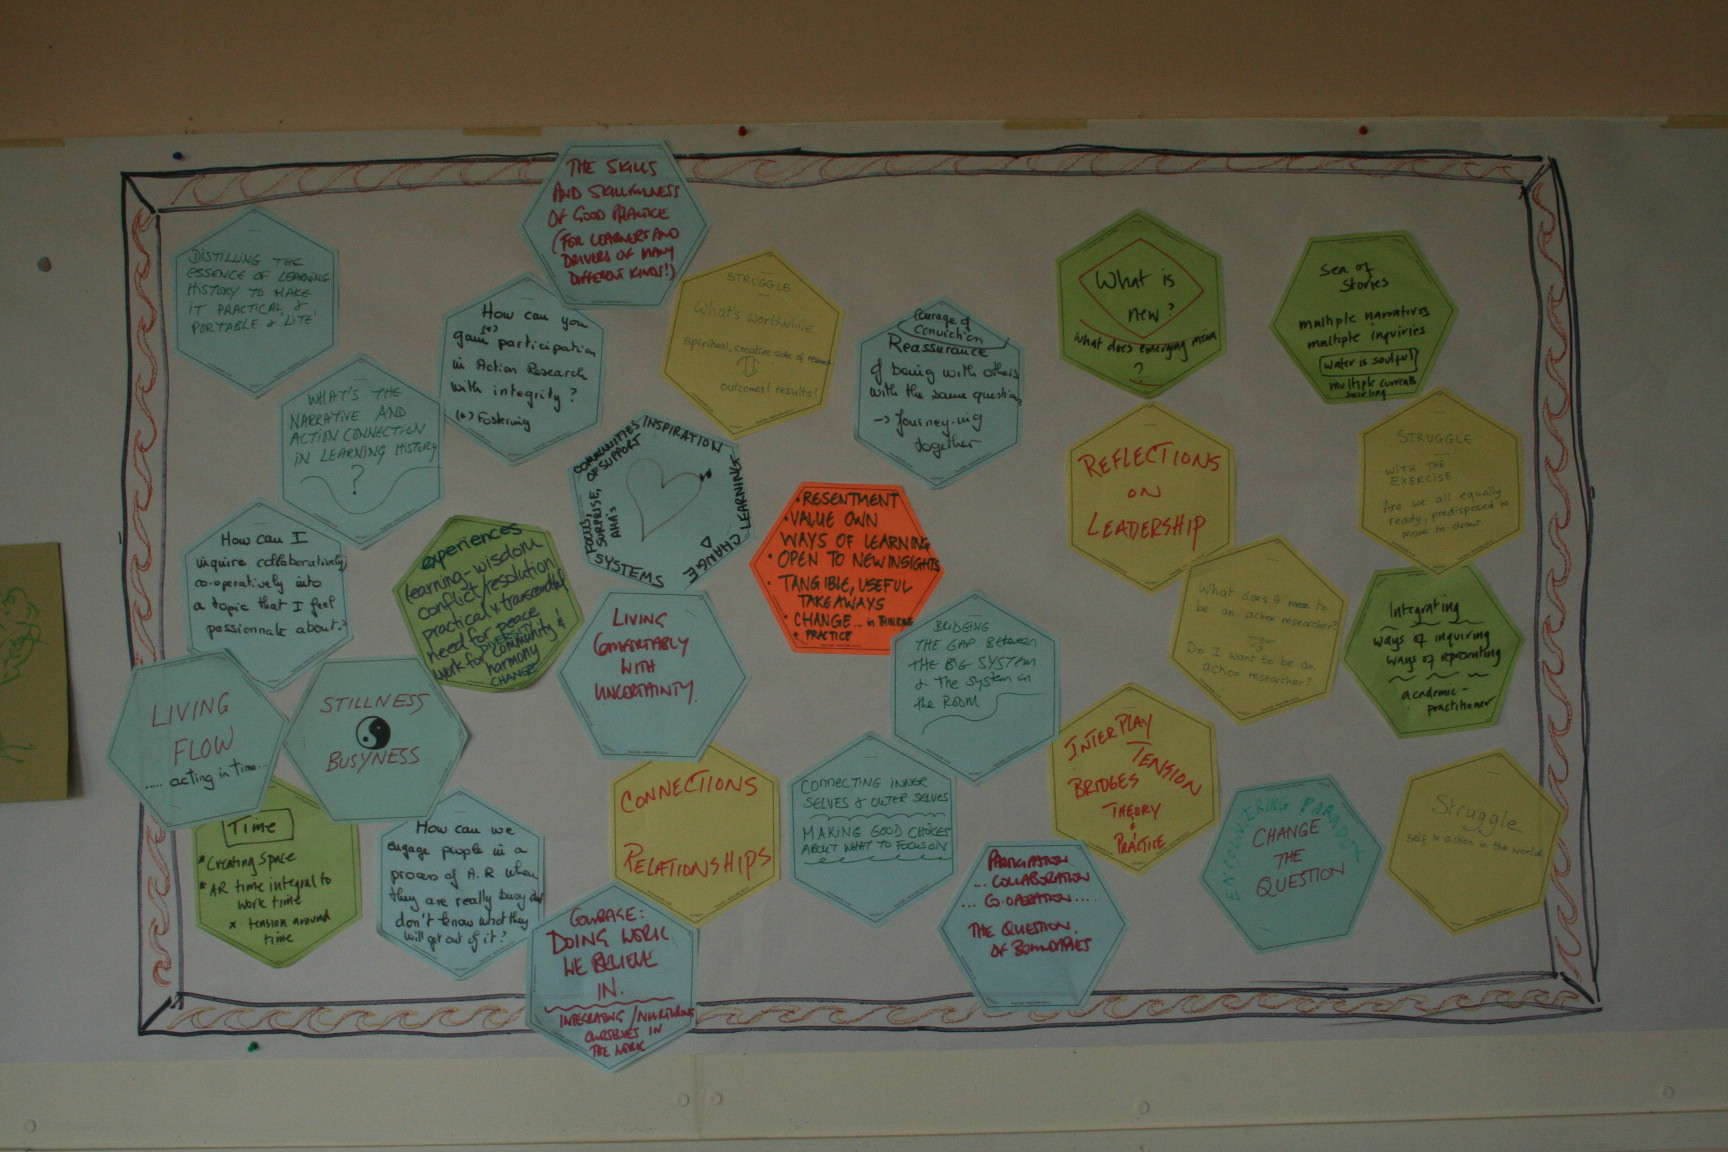 THE SKILLS
AND SKILLFULNESS
OF GOOD PRACTICE
(FOR LEARNERS AND
DRIVERS OF MANY
DIFFERENT KINDS!)
DISTILLING THE
ESSENCE OF LEARNING
HISTORY TO MAKE
IT PRACTICAL,
PORTABLE & 'LITE'
How can you
gain (*) participation
in Action Research
with integrity?
(*) Fostering
STRUGGLE
What's worthwhile
spiritual, creative side of
outcomes! results!
Courage of
Conviction
Reassurance
of being with others
with the same question
→ Journey-ing
together
What is
new?
What does emerging mean
?
Sea of
Stories
multiple narratives
multiple inquiries
Water is soulful
multiple currents
swirling
WHAT'S THE
NARRATIVE AND
ACTION CONNECTION
IN LEARNING HISTORY
?
COMMUNITIES
OF SUPPORT
INSPIRATION
LEARNING
CHANGE
SYSTEMS
FOCUS,
SURPRISE,
AHA's
• RESENTMENT
• VALUE OWN
WAYS OF LEARNING
• OPEN TO NEW INSIGHTS
• TANGIBLE, USEFUL
TAKE AWAYS
• CHANGE... in THINKING
+ PRACTICE
REFLECTIONS
ON
LEADERSHIP
STRUGGLE
WITH THE
EXERCISE
Are we all equally
ready, predisposed to
move to draw
How can I
inquire collaboratively,
co-operatively into
a topic that I feel
passionate about?
experiences
learning-wisdom
conflict/resolution
practical & transcendent
need for peace
DIVERSITY
work for community &
harmony
CHANGE
LIVING
COMFORTABLY
WITH
UNCERTAINTY.
BRIDGING
THE GAP Between
THE BIG SYSTEM
& The system in
the ROOM
What does it mean to
be an action researcher?
Do I want to be an
action researcher?
Integrating
ways of inquiring
ways of representing
academic-
practitioner
LIVING
FLOW
..... acting in time....
STILLNESS
BUSYNESS
CONNECTIONS
RELATIONSHIPS
CONNECTING INNER
SELVES & OUTER SELVES
MAKING GOOD CHOICES
ABOUT WHAT TO FOCUS ON
INTERPLAY
TENSION
BRIDGES
THEORY
+
PRACTICE
ENCOUNTERING PARADOX
CHANGE
THE
QUESTION
Struggle
self & action in the world
Time
* Creating Space
* AR time integral to
work time
* tension around
time
How can we
engage people in a
process of A.R when
they are really busy and
don't know what they
will get out of it?
COURAGE:
DOING WORK
WE BELIEVE
IN.
INTEGRATING / NURTURING
OURSELVES IN
THE WORK
PARTICIPATION
... COLLABORATION
... CO-OPERATION....
THE QUESTION
OF BOUNDARIES